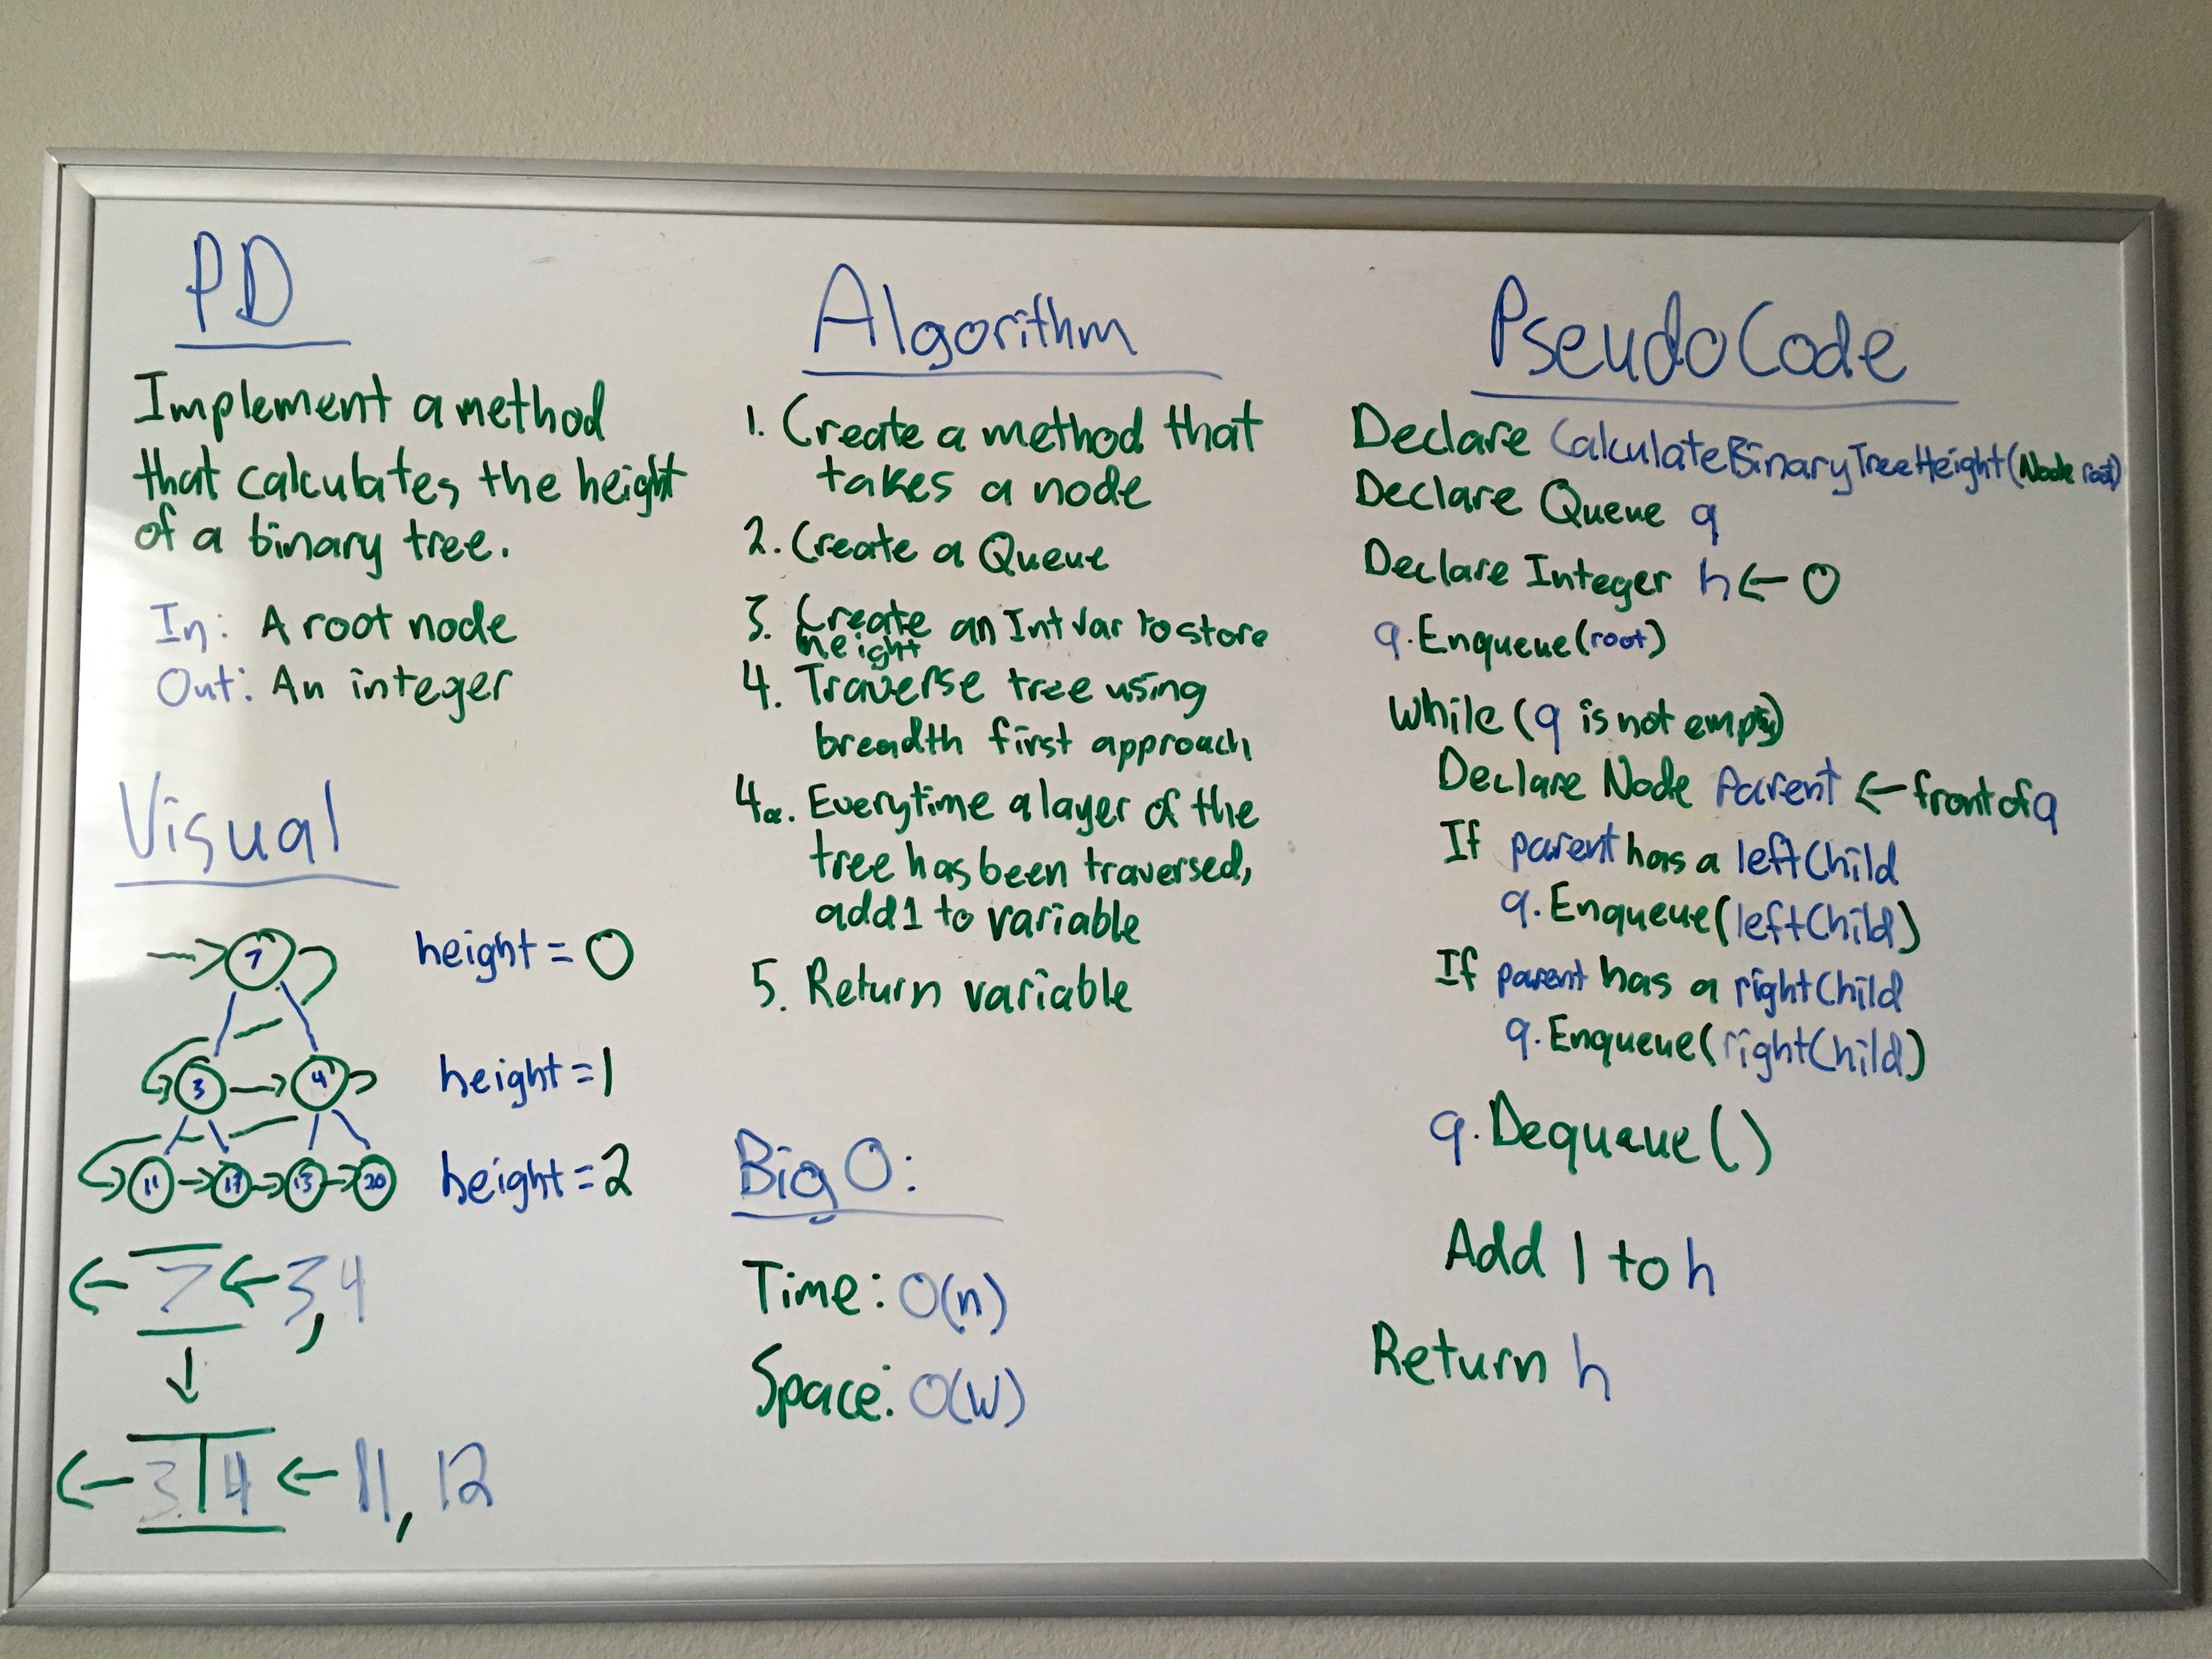 PD
Implement a method
that calculates the height
of a binary tree.
In: A root node
Out: An integer
Visual
7
height = 0
3 4
height = 1
11 13 20
height = 2
7 3,4
3 4 11, 12
Algorithm
1. Create a method that
takes a node
2. Create a Queue
3. Create an Int var to store
height
4. Traverse tree using
breadth first approach
4a. Everytime a layer of the
tree has been traversed,
add 1 to variable
5. Return variable
Big O:
Time: O(n)
Space: O(W)
PseudoCode
Declare CalculateBinaryTreeHeight(Node root)
Declare Queue q
Declare Integer h ← 0
q.Enqueue(root)
While (q is not empty)
Declare Node Parent ← front of q
If parent has a leftChild
q.Enqueue(leftChild)
If parent has a rightChild
q.Enqueue(rightChild)
q.Dequeue()
Add 1 to h
Return h